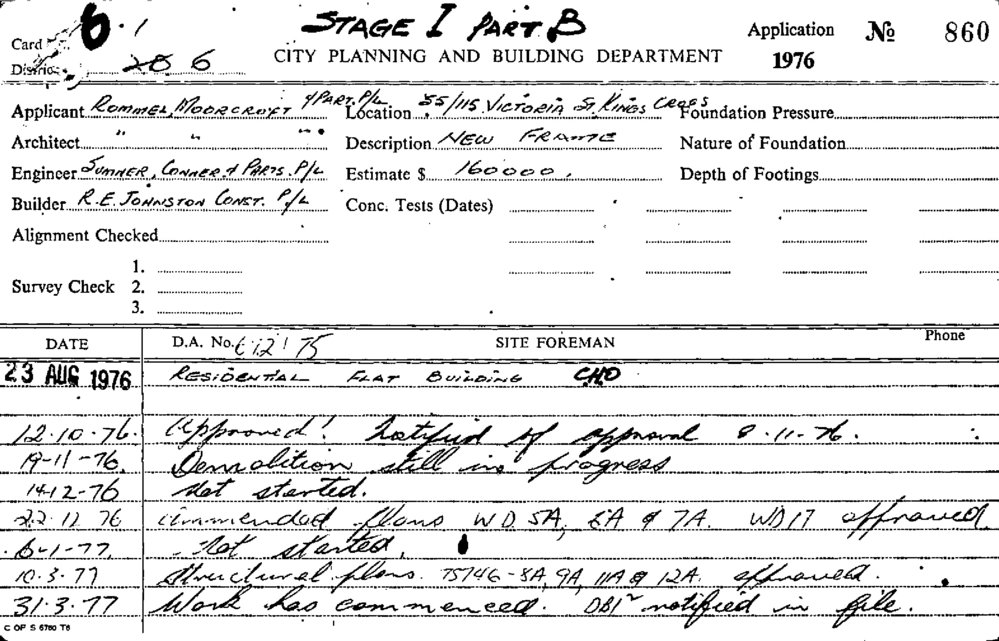 STAGE I PART B
Card No. 6.1 Application No 860
District 28 6 CITY PLANNING AND BUILDING DEPARTMENT 1976
Applicant ROMMEL, MOORCROFT & PART. P/L Location 55/115 VICTORIA St. KINGS CROSS Foundation Pressure
Architect " " " Description NEW FRAME Nature of Foundation
Engineer SUMNER, CONNER & PARTS. P/L Estimate $ 160000. Depth of Footings
Builder R.E. JOHNSTON CONST. P/L Conc. Tests (Dates)
Alignment Checked
1.
Survey Check 2.
3.
DATE D.A. No. 75 SITE FOREMAN Phone
23 AUG 1976 RESIDENTIAL FLAT BUILDING CHO
12.10.76. Approved! Notified of approval 8.11.76.
19-11-76. Demolition still in progress
14-12-76 Not started.
22.12 76 Ammended plans W.D. 5A, 6A & 7A. WD17 approved
6-1-77. Not started.
10.3.77 Structural plans. 75746-8A, 9A, 11A & 12A. approved.
31.3.77 Work has commenced. notified in file.
C OF S 6760 T6